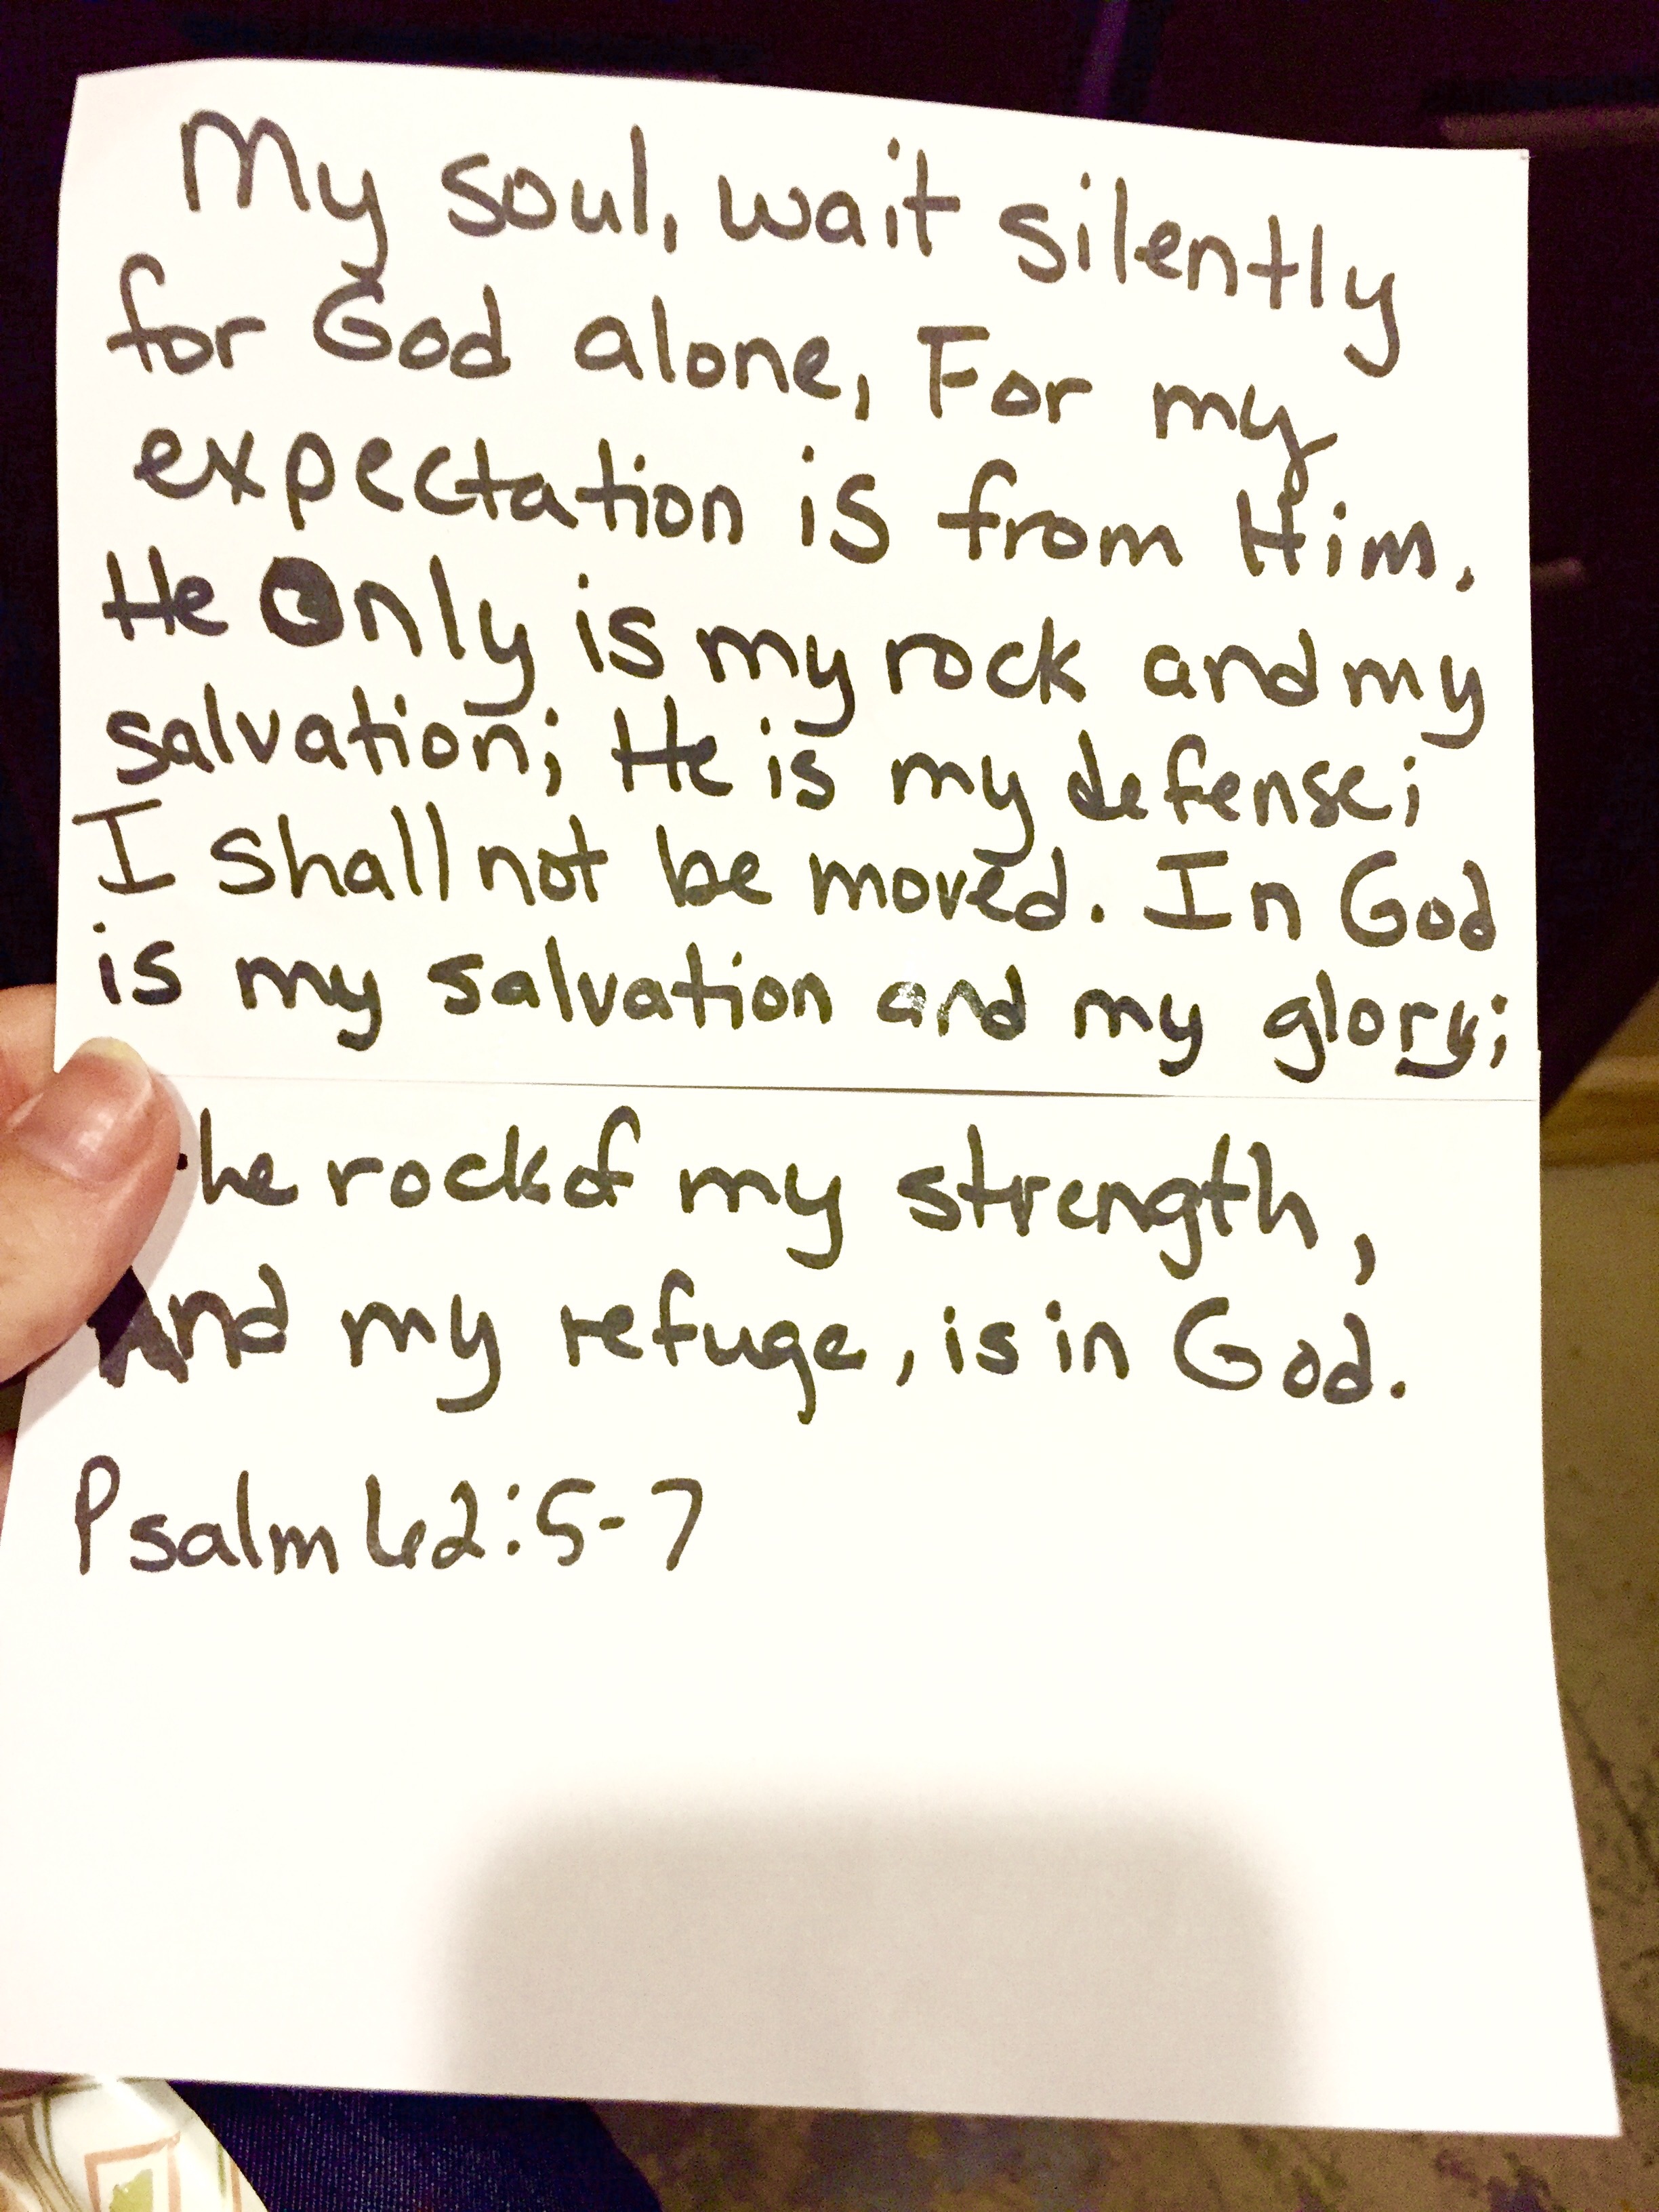 My soul, wait silently
for God alone, For my
expectation is from Him.
He Only is my rock and my
salvation; He is my defense;
I shall not be moved. In God
is my salvation and my glory;
The rock of my strength,
And my refuge, is in God.
Psalm 62:5-7